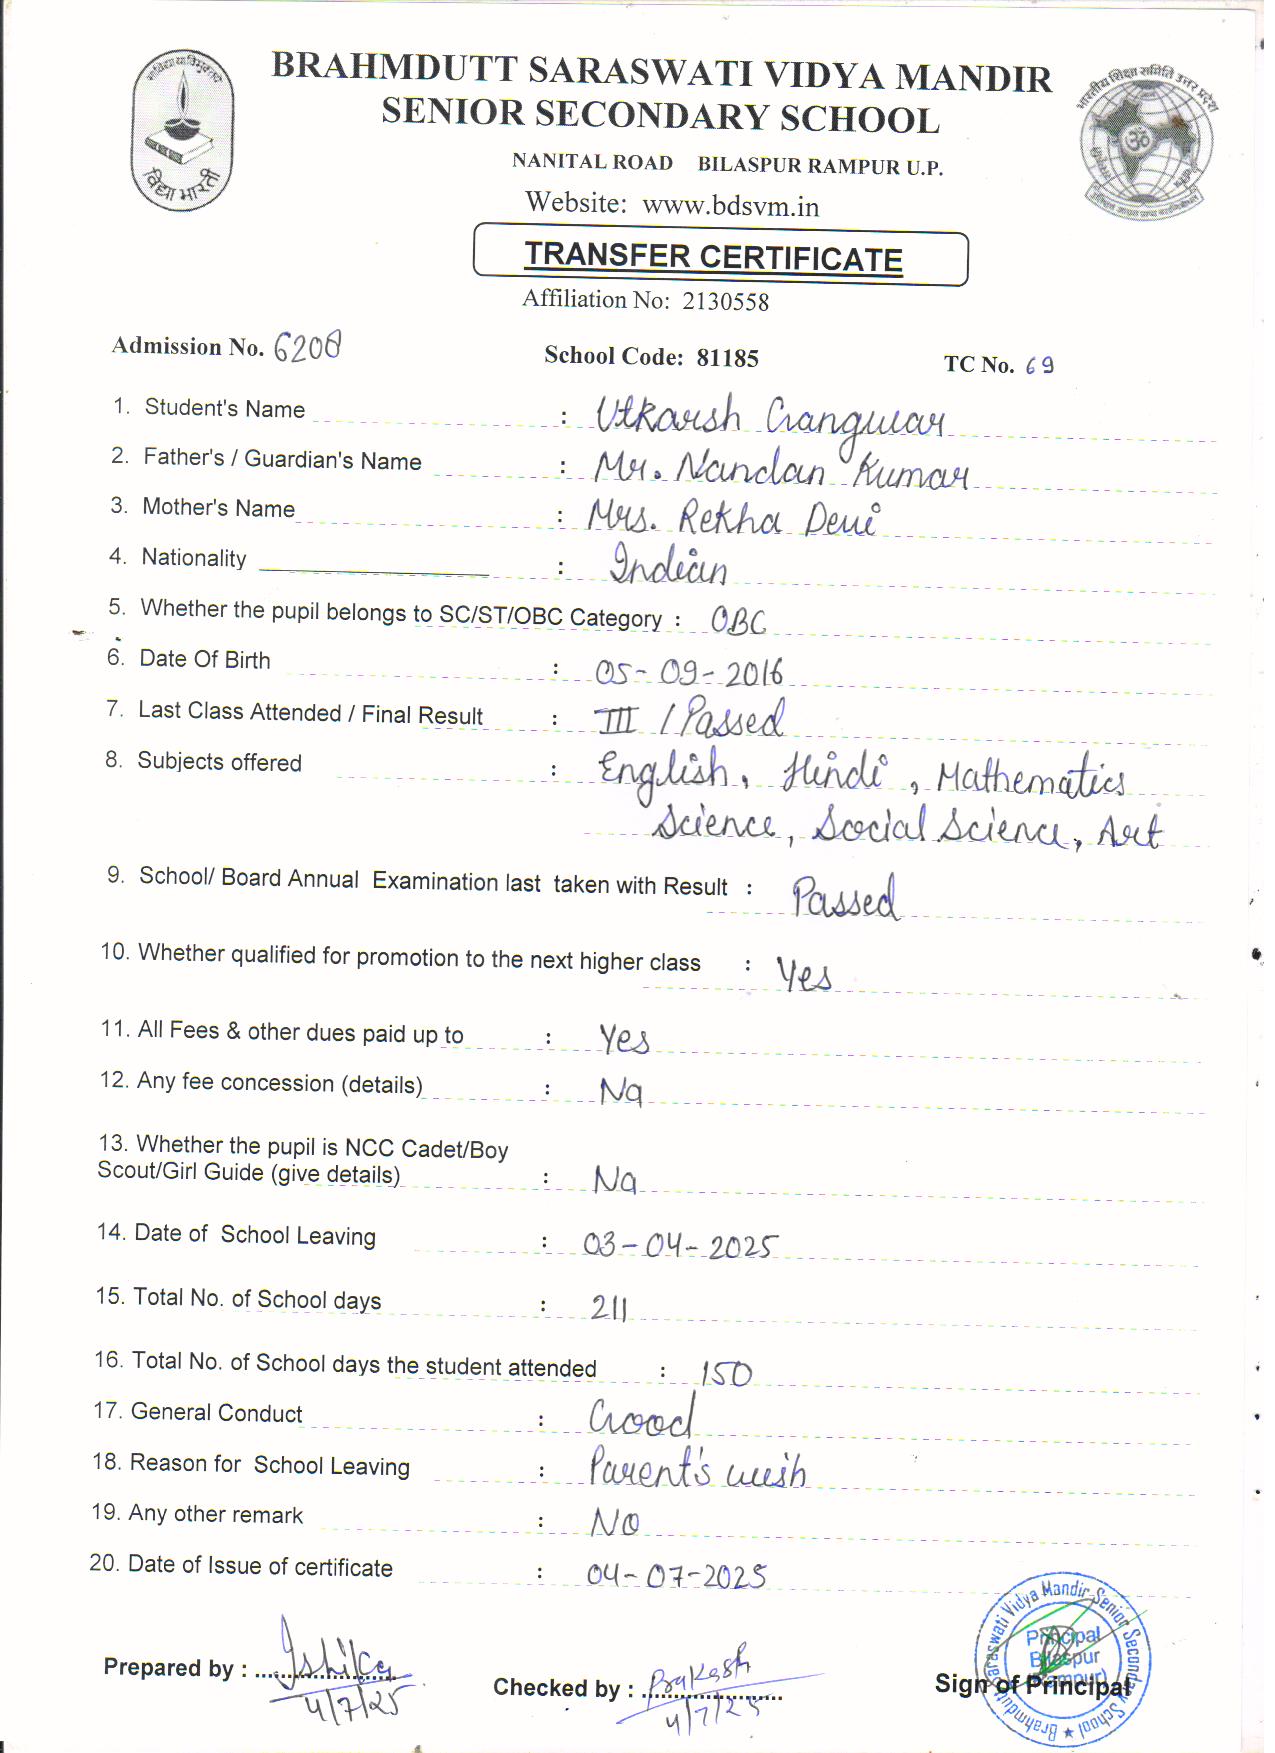 BRAHMDUTT SARASWATI VIDYA MANDIR
SENIOR SECONDARY SCHOOL
NANITAL ROAD BILASPUR RAMPUR U.P.
Website: www.bdsvm.in
TRANSFER CERTIFICATE
Affiliation No: 2130558
विद्या भारती
भारतीय शिक्षा समिति उत्तर प्रदेश
Admission No. 6208 School Code: 81185 TC No. 69
1. Student's Name : Utkarsh Gangwar
2. Father's / Guardian's Name : Mr. Nandan Kumar
3. Mother's Name : Mrs. Rekha Devi
4. Nationality : Indian
5. Whether the pupil belongs to SC/ST/OBC Category : OBC
6. Date Of Birth : 05-09-2016
7. Last Class Attended / Final Result : III / Passed
8. Subjects offered : English, Hindi, Mathematics
Science, Social Science, Art
9. School/ Board Annual Examination last taken with Result : Passed
10. Whether qualified for promotion to the next higher class : Yes
11. All Fees & other dues paid up to : Yes
12. Any fee concession (details) : Na
13. Whether the pupil is NCC Cadet/Boy
Scout/Girl Guide (give details) : Na
14. Date of School Leaving : 03-04-2025
15. Total No. of School days : 211
16. Total No. of School days the student attended : 150
17. General Conduct : Good
18. Reason for School Leaving : Parent's wish
19. Any other remark : No
20. Date of Issue of certificate : 04-07-2025
Prepared by : Ishika
4/7/25
Checked by : Prakash
4/7/25
Sign of Principal
Brahmdutt Saraswati Vidya Mandir Senior Secondary School
Principal
Bilaspur
(Rampur)